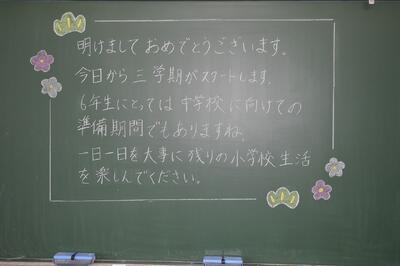 明けましておめでとうございます。
今日から三学期がスタートします。
6年生にとっては中学校に向けての
準備期間でもありますね。
一日一日を大事に残りの小学校生活
を楽しんでください。